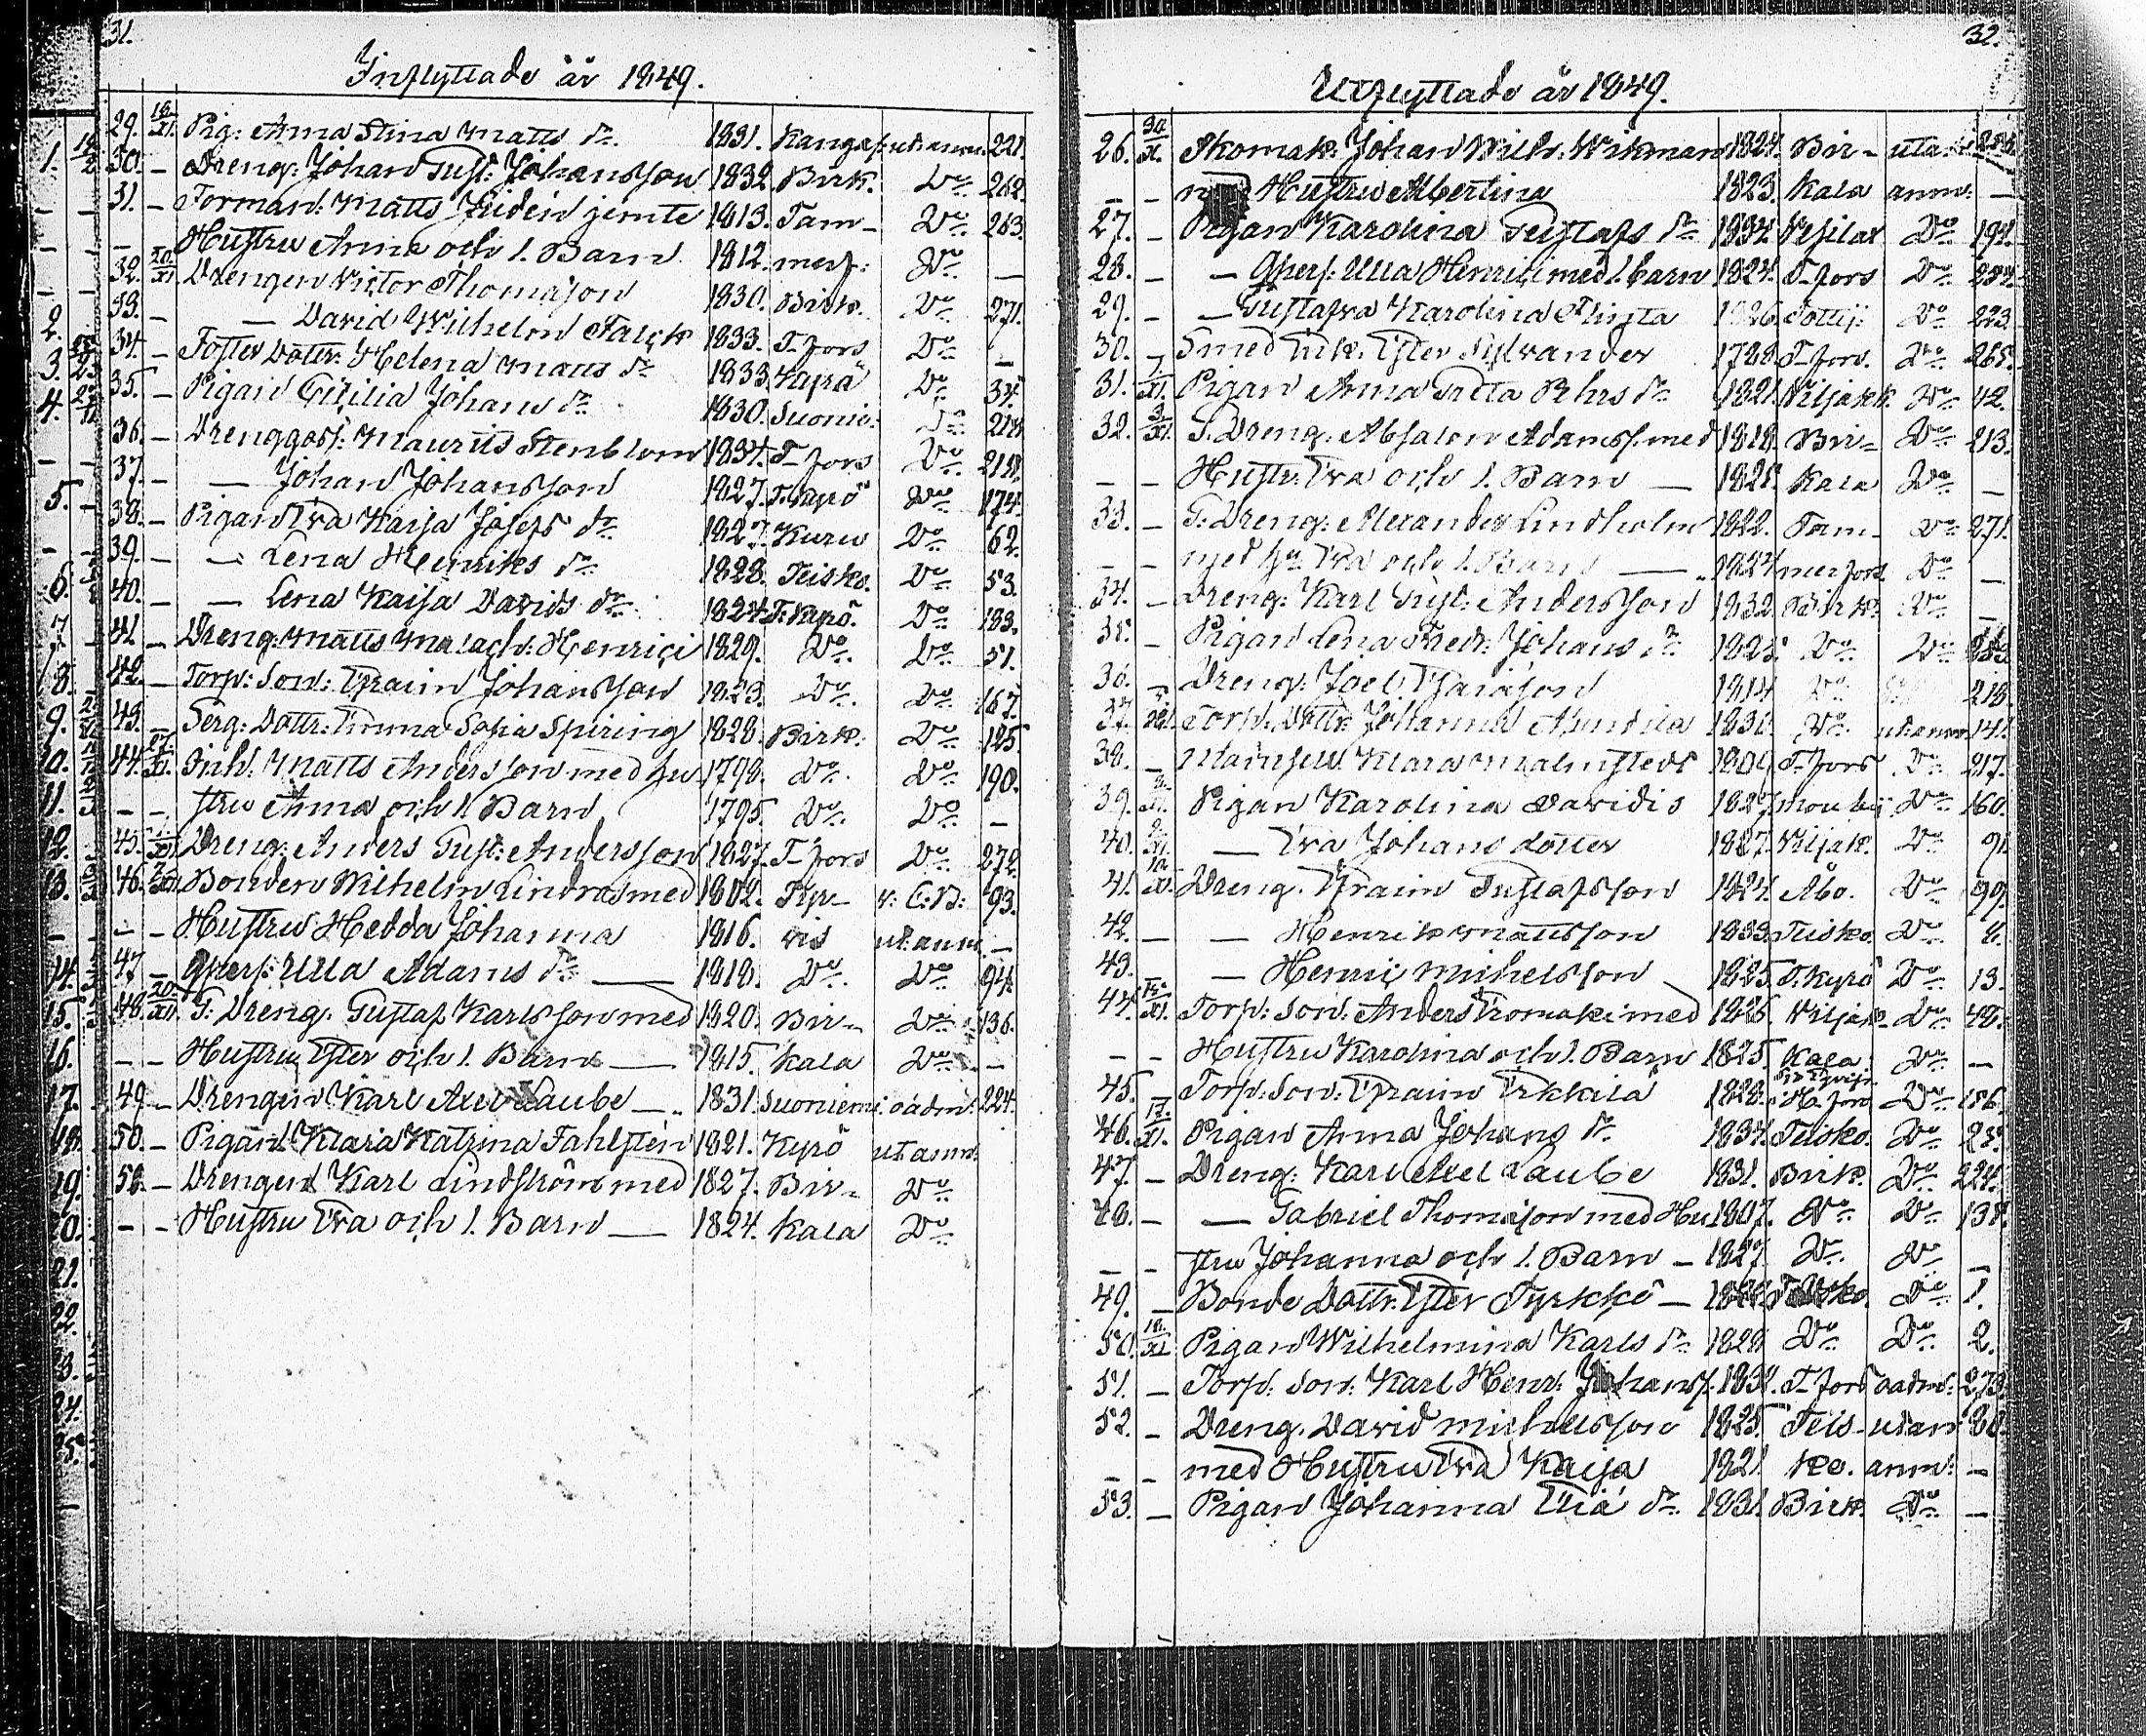 31.
Inflyttade år 1849.
29. 18/XI. Pig: Anna Stina Matts dr. 1831. Kangas. ut: anm: 221.
30. – Dreng: Johan Gust: Johansson 1832. Birk. Do 262.
31. – Forman: Matts Judin jemte 1813. Tam- Do 263.
– Hustru Anna och 1. Barn. 1812. merf: Do –
32. 20./XI. Drengen Victor Thomasson 1830. Birk. Do 271.
33. – — David Wilhelm Falck 1833. T-fors Do –
34. – Foster Dottr: Helena Matts dr. 1833. Kyrö Do 37.
35. – Pigan Cicilia Johans dr. 1830. Suonie: Do
36. – Drenggoss: Mauritz Stenblom 1834. T-fors Do 218.
37. – — Johan Johansson 1827. T. Kyrö Do 174.
38. – Pigan Eva Kaisa Josefs dr. 1827. Kuru Do 62.
39. – — Lena Henriks dr. 1828. Teisko. Do 53.
40. – — Lena Kaisa Davids dr. 1824. T. Kyrö. Do 183.
41. – Dreng: Matts Malach: Henrici 1829. Do. Do 51.
42. – Torp: Son: Efraim Johansson 1823. Do. Do 167.
43. – Serg: Dottr: Emma Sofia Spiring 1828. Birk: Do 125
44. 27./XI. Inh: Matts Andersson med hu 1798. Do. Do 190.
– – stru Anna och 1. Barn 1795. Do. Do –
45. XII. Dreng: Anders Gust: Andersson 1827. T-fors Do 272.
46. XII. Bonden Wilhelm Lindros med 1802. Tyr- v: C: B: 93.
– – Hustru Hedda Johanna 1816. vis ut: anm: –
47. – Qpers: Ulla Adams dr. — 1818. Do. Do 94.
48. 20./XII. G: Dreng. Gustaf Karlsson med 1820. Bir- Do 136.
– – Hustru Ester och 1. Barn — 1815. kala Do –
49. – Drengen Karl Axel Laube —.. 1831. Suoniemi. oadm: 224.
50. – Pigan Klara Katrina Fahlsten 1821. Kyrö ut anm:
52. – Drengen Karl Lindström med 1827. Bir- Do
– – Hustru Eva och 1. Barn — 1824. kala Do
32.
Utflyttade år 1849.
26. 30/X. Skomak: Johan Wilh: Wikman 1824. Bir- utan
– – Hustru Albertina 1823. kala anm: –
27. – Pigan Karolina Gustafs dr. 1834. Vesilax Do 191.
28. – — Qpers: Ulla Henrici med 1. barn 1824. T-fors Do 254.
29. – — Gustafva Karolina Flinta Tottij: Do 223.
30. – Smed Enk. Ester Sylvander 1788. T-fors. Do 265.
31. XI. Pigan Anna Greta Pehrs dr. 1821. Viljakk. Do 42.
32. 3/XI. G: Dreng: Absalon Adamss. med 1818. Bir- Do 213.
– – Hustr: Eva och 1. Barn — 1821. kala Do –
33. – G: Dreng: Alexander Lindholm 1822. Tam- Do 271.
– – med hu Eva och 1. Barn — 1824 merfors Do –
34. – Dreng: Karl Gust: Andersson 1832 Birk: Do –
35. – Pigan Lena Fredr: Johans dr. 1825. Do. Do
36. – Dreng: Joel 1814 Do 218.
37. XI. Torp: Dottr: Johanna 1831. Do. ut: anm: 141.
38. – Mamsell Klara Malmstedt 1801. T-fors Do 217.
39. XI. Pigan Karolina Davidis 1827. Mouhij. Do 160.
40. 9./XI. — Eva Johans dotter 1827. Viljak. Do 91.
41. 10./XI. Dreng. Efraim Gustafsson 1824. Åbo. Do 99.
42. – — Henrik Mattsson 1833. Teisko. Do 8.
43. — Henric Michelsson 1825. T. Kyrö Do 13.
44. XI. Torp: Son: Anders Kromaki med 1826. Viljak- Do 48.
– – Hustru Karolina och 1. Barn 1825. kala Do –
45. Torp: Son: Efraim Erkkilä 1828. Do 186.
46. 17./XI. Pigan Anna Johans dr. 1834. Teisko. Do 25.
47. – Dreng: Karl Axel Laube 1831. Birk. Do 224.
48. – — Gabriel Thomasson med Hu 1807. Do. Do 138.
– – stru Johanna och 1. Barn – 1827. Do. Do –
49. – Bonde Dottr: Ester Tyrkkö — Teisko. Do 1.
50. 18./XI. Pigan Wilhelmina Karls dr. 1829 Do. Do. 2.
51. – Torp: Son: Karl Henr: Johanss. 1834. T-fors oadm: 273.
52. – Dreng. David Michelsson 1825. Teis- utan 30.
– – med Hustru Eva Kaisa 1821. ko. anm: –
53. – Pigan Johanna Elia dr. 1831. Birk. Do –